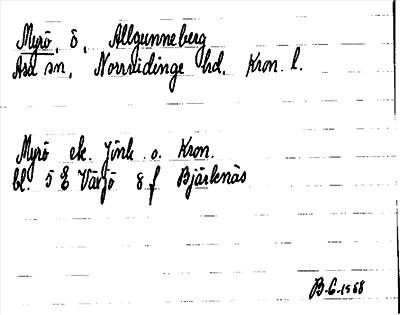 Myrö, ö, Allgunneberg
Asa sn, Norrvidinge hd. Kron. l.
Myrö ek. Jönk o. Kron.
bl. 5 E Växjö 8 f Bjärknäs
B-G-1968